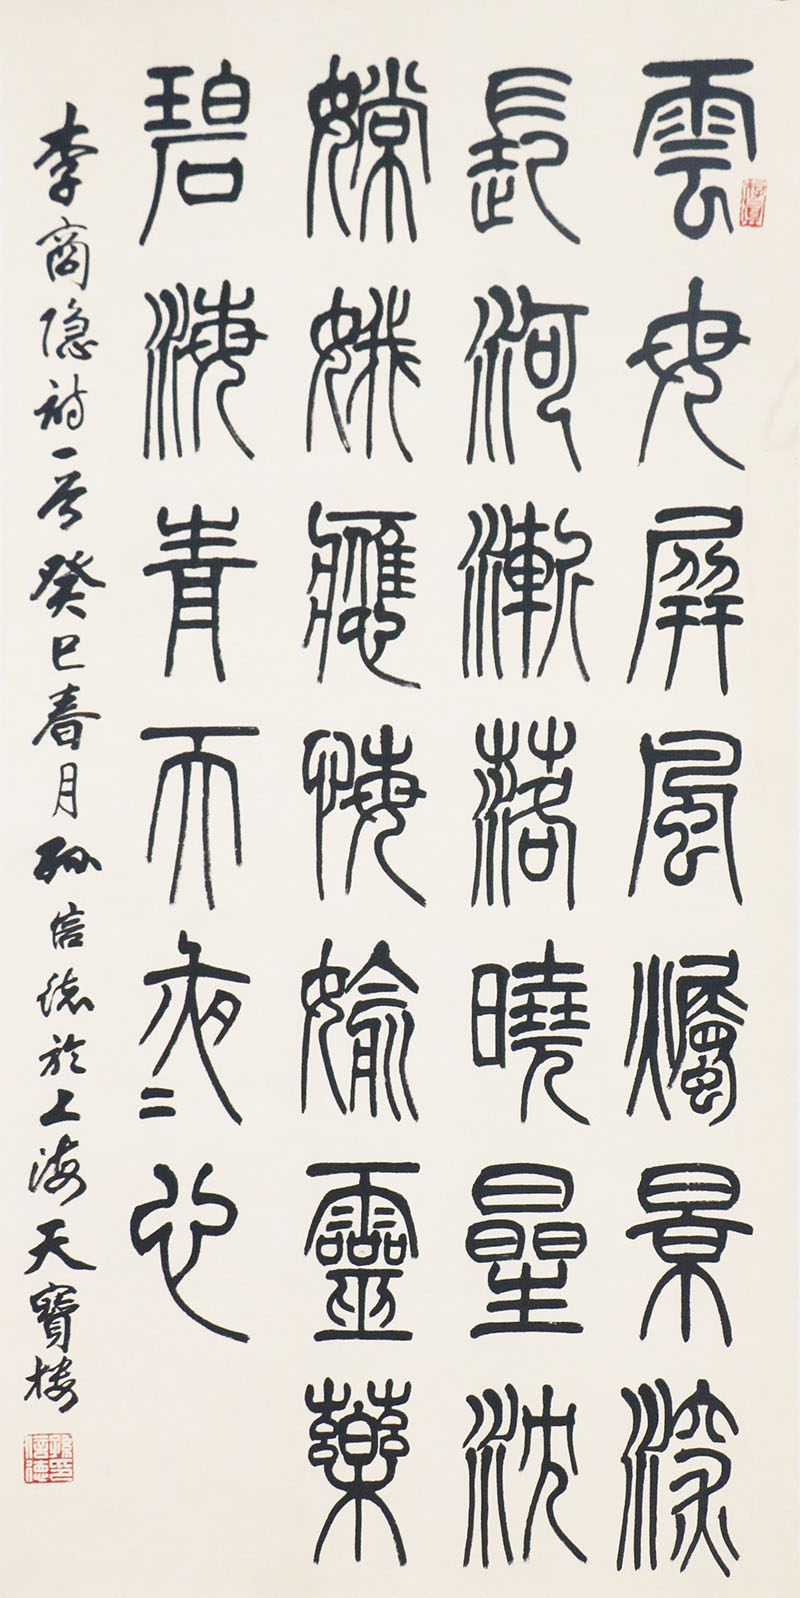 雲母屏風燭景深
長河漸落曉星沈
嫦娥應悔媮靈藥
碧海青天夜々心
李商隐诗一首癸巳春月孙信德於上海天寶楼
孫印信德